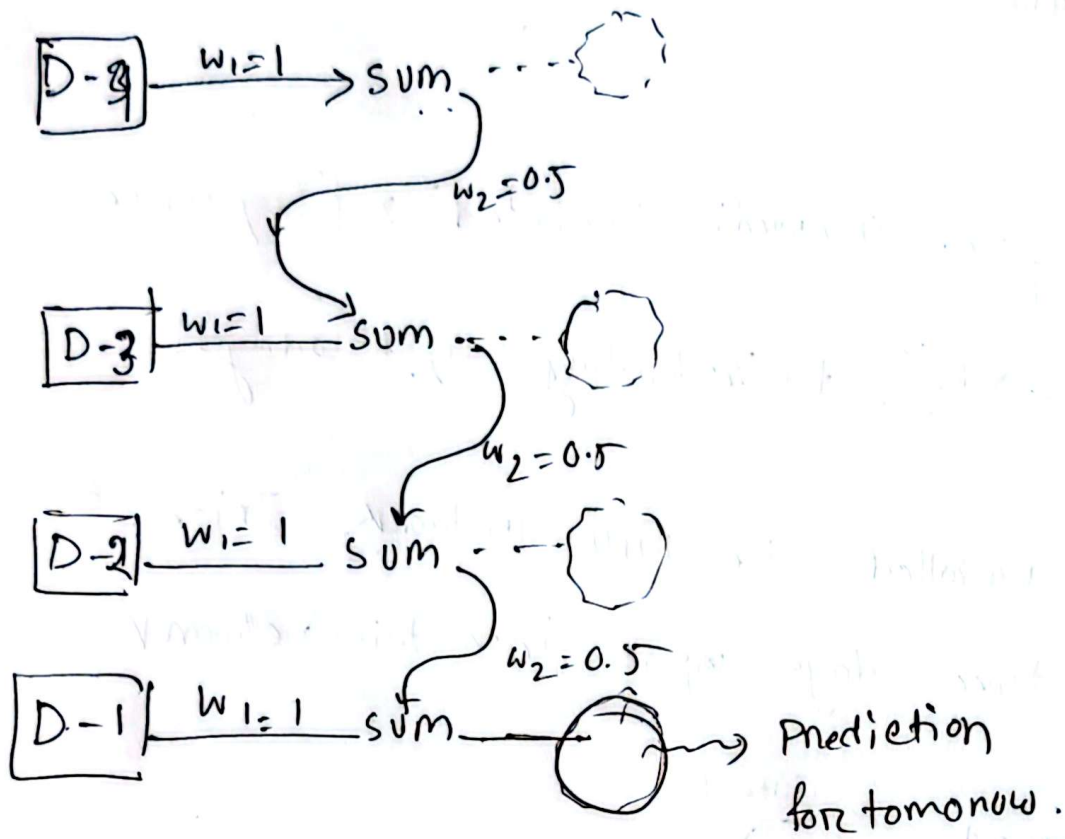 D-4 w1=1 SUM
w2=0.5
D-3 w1=1 SUM
w2=0.5
D-2 w1=1 SUM
w2=0.5
D-1 w1=1 SUM Prediction
for tomorrow.